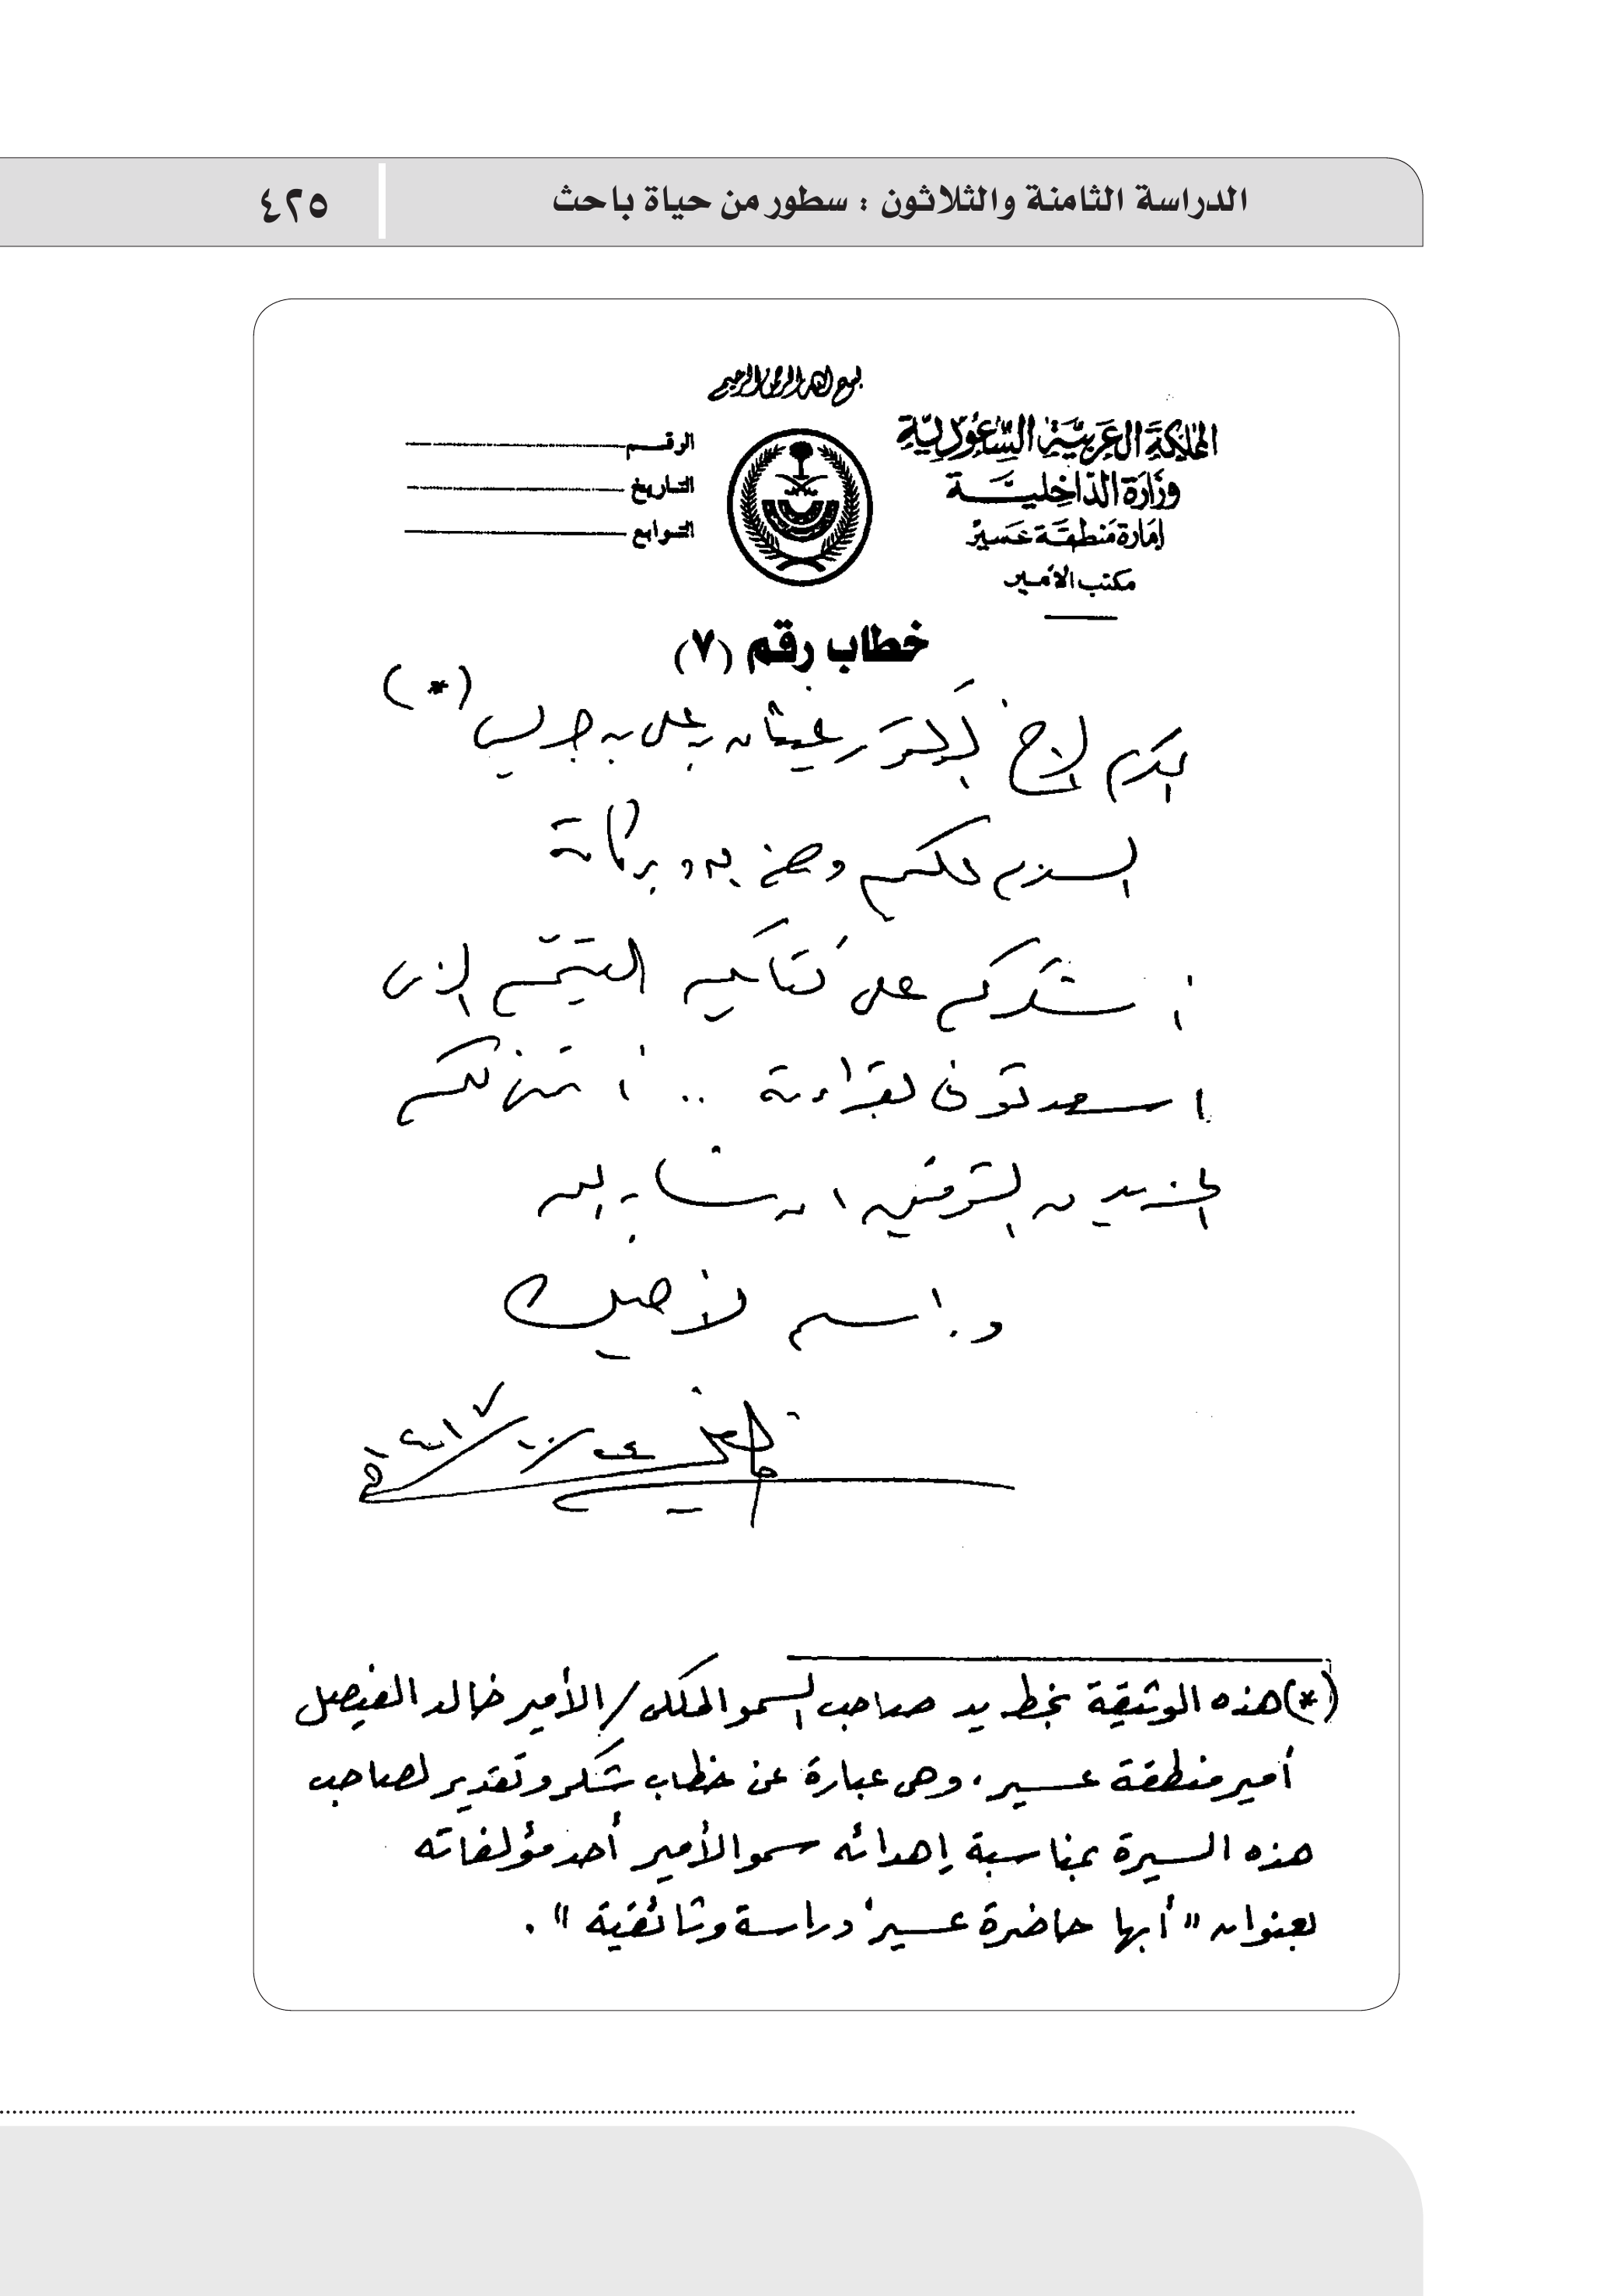 الدراسة الثامنة والثلاثون : سطور من حياة باحث
٤٢٥
بسم الله الرحمن الرحيم
المملكة العربية السعودية
وزارة الداخلية
إمارة منطقة عسير
مكتب الأمير
الرقم
التاريخ
التوابع
خطاب رقم (٧)
المكرم الاخ الدكتور غيثان بن علي بن جريس (*)
السلام عليكم ورحمة الله وبركاته
أشكركم على كتابكم القيم الذي
اسعدتوني بقراءته .. أتمنى لكم
المزيد من التوفيق ان شاء الله
واسلم لأخيك
(*) هذه الوثيقة بخط يد صاحب السمو الملكي / الأمير خالد الفيصل
أمير منطقة عسير، وهي عبارة عن خطاب شكر وتقدير لصاحب
هذه السيرة بمناسبة إهدائه سمو الأمير أحد مؤلفاته
بعنوان "أبها حاضرة عسير: دراسة وثائقية".